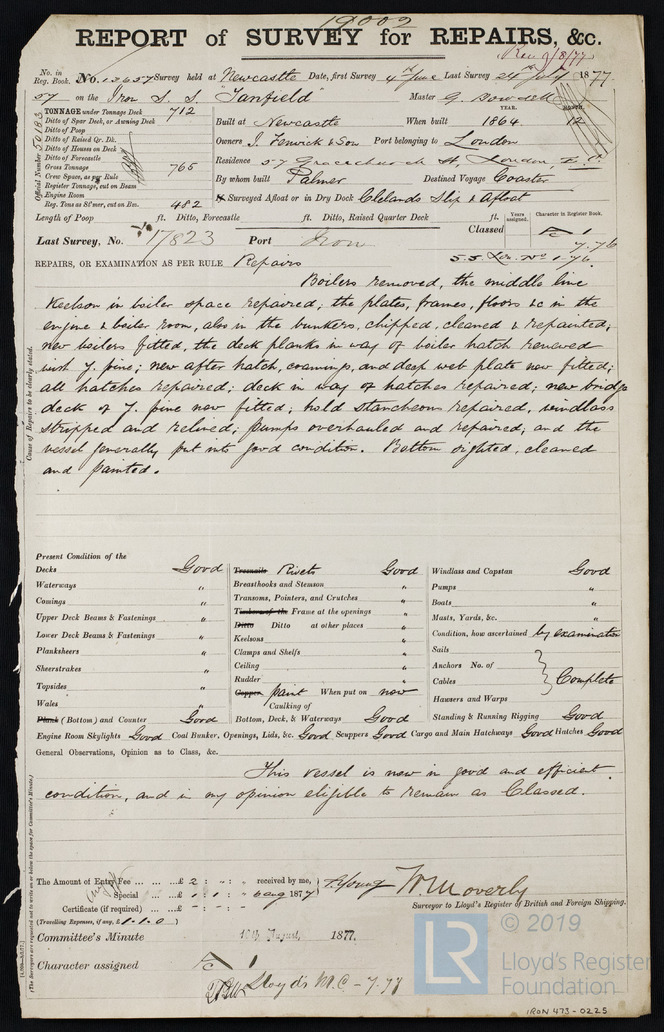 19002
REPORT of SURVEY for REPAIRS, &c.
Rec 9/8/77
No. in Reg. Book. No. 13657 Survey held at Newcastle Date, first Survey 4th June Last Survey 24th July 1877.
57 on the Iron S. S. "Tanfield" Master G. Dowsell
TONNAGE under Tonnage Deck 712
YEAR. MONTH.
Ditto of Spar Deck, or Awning Deck
Built at Newcastle When built 1864 12
Ditto of Poop
Ditto of Raised Qr. Dk.
Owners J. Fenwick & Son Port belonging to London
Ditto of Houses on Deck
Ditto of Forecastle
Residence 57 Gracechurch St, London, E.C.
Gross Tonnage 765
Crew Space, as per Rule
By whom built Palmer Destined Voyage Coaster
Register Tonnage, cut on Beam
Engine Room
Reg. Tons as St'mer, cut on Bm. 482
Official Number 50183
If Surveyed Afloat or in Dry Dock Clelands Slip & Afloat
Length of Poop ft. Ditto, Forecastle ft. Ditto, Raised Quarter Deck ft.
Years assigned. Character in Register Book.
Classed A 1
7.76
Last Survey, No. 17823 Port Iron
S.S. Lon. No 1-76.
REPAIRS, OR EXAMINATION AS PER RULE Repairs
Cause of Repairs to be clearly stated.
Boilers removed, the middle line
Keelson in boiler space repaired; the plates, frames, floors &c in the
engine & boiler room, also in the bunkers, chipped, cleaned & repainted;
new boilers fitted, the deck planks in way of boiler hatch renewed
with Y. pine; new after hatch, coamings, and deep web plate now fitted;
all hatches repaired; deck in way of hatches repaired; new bridge
deck of Y. pine now fitted; hold stancheons repaired, windlass
stripped and relined; pumps overhauled and repaired; and the
vessel generally put into good condition. Bottom sighted, cleaned
and painted.
Present Condition of the
Decks Good
Waterways "
Comings "
Upper Deck Beams & Fastenings "
Lower Deck Beams & Fastenings "
Planksheers "
Sheerstrakes "
Topsides "
Wales "
Plank (Bottom) and Counter Good
Treenails Rivets Good
Breasthooks and Stemson "
Transoms, Pointers, and Crutches "
Timbers of the Frame at the openings "
Ditto Ditto at other places "
Keelsons "
Clamps and Shelfs "
Ceiling "
Rudder "
Copper paint When put on now
Caulking of
Bottom, Deck, & Waterways Good
Windlass and Capstan Good
Pumps "
Boats "
Masts, Yards, &c. "
Condition, how ascertained by examination
Sails
Anchors No. of
Cables Complete
Hawsers and Warps
Standing & Running Rigging Good
Engine Room Skylights Good Coal Bunker, Openings, Lids, &c. Good Scuppers Good Cargo and Main Hatchways Good Hatches Good
General Observations, Opinion as to Class, &c.
This vessel is now in good and efficient
condition, and in my opinion eligible to remain as Classed.
The Amount of Entry Fee £ 2 : " : " received by me,
Special £ 1 : 1 : " 6 aug 1877
Certificate (if required) £ - : - : -
(Travelling Expenses, if any, £ 1.1.0)
T. Young W. Moverly
Surveyor to Lloyd's Register of British and Foreign Shipping.
Committee's Minute 10th August, 1877.
Character assigned A 1
Lloyd's M.C - 7.77
(The Surveyors are requested not to write on or below the space for Committee's Minute.)
LR
© 2019
Lloyd's Register
Foundation
IRON 473-0225